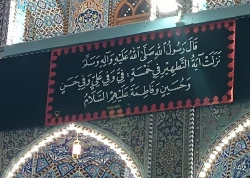 قَالَ رَسُولُ اللهِ صَلَّى اللهُ عَلَيْهِ وَآلِهِ وَسَلَّمَ
نَزَلَتْ آيَةُ التَّطْهِيرِ فِي خَمْسَةٍ: فِيَّ وَفِي عَلِيٍّ وَفِي حَسَنٍ
وَحُسَيْنٍ وَفَاطِمَةَ عَلَيْهِمُ السَّلَامُ